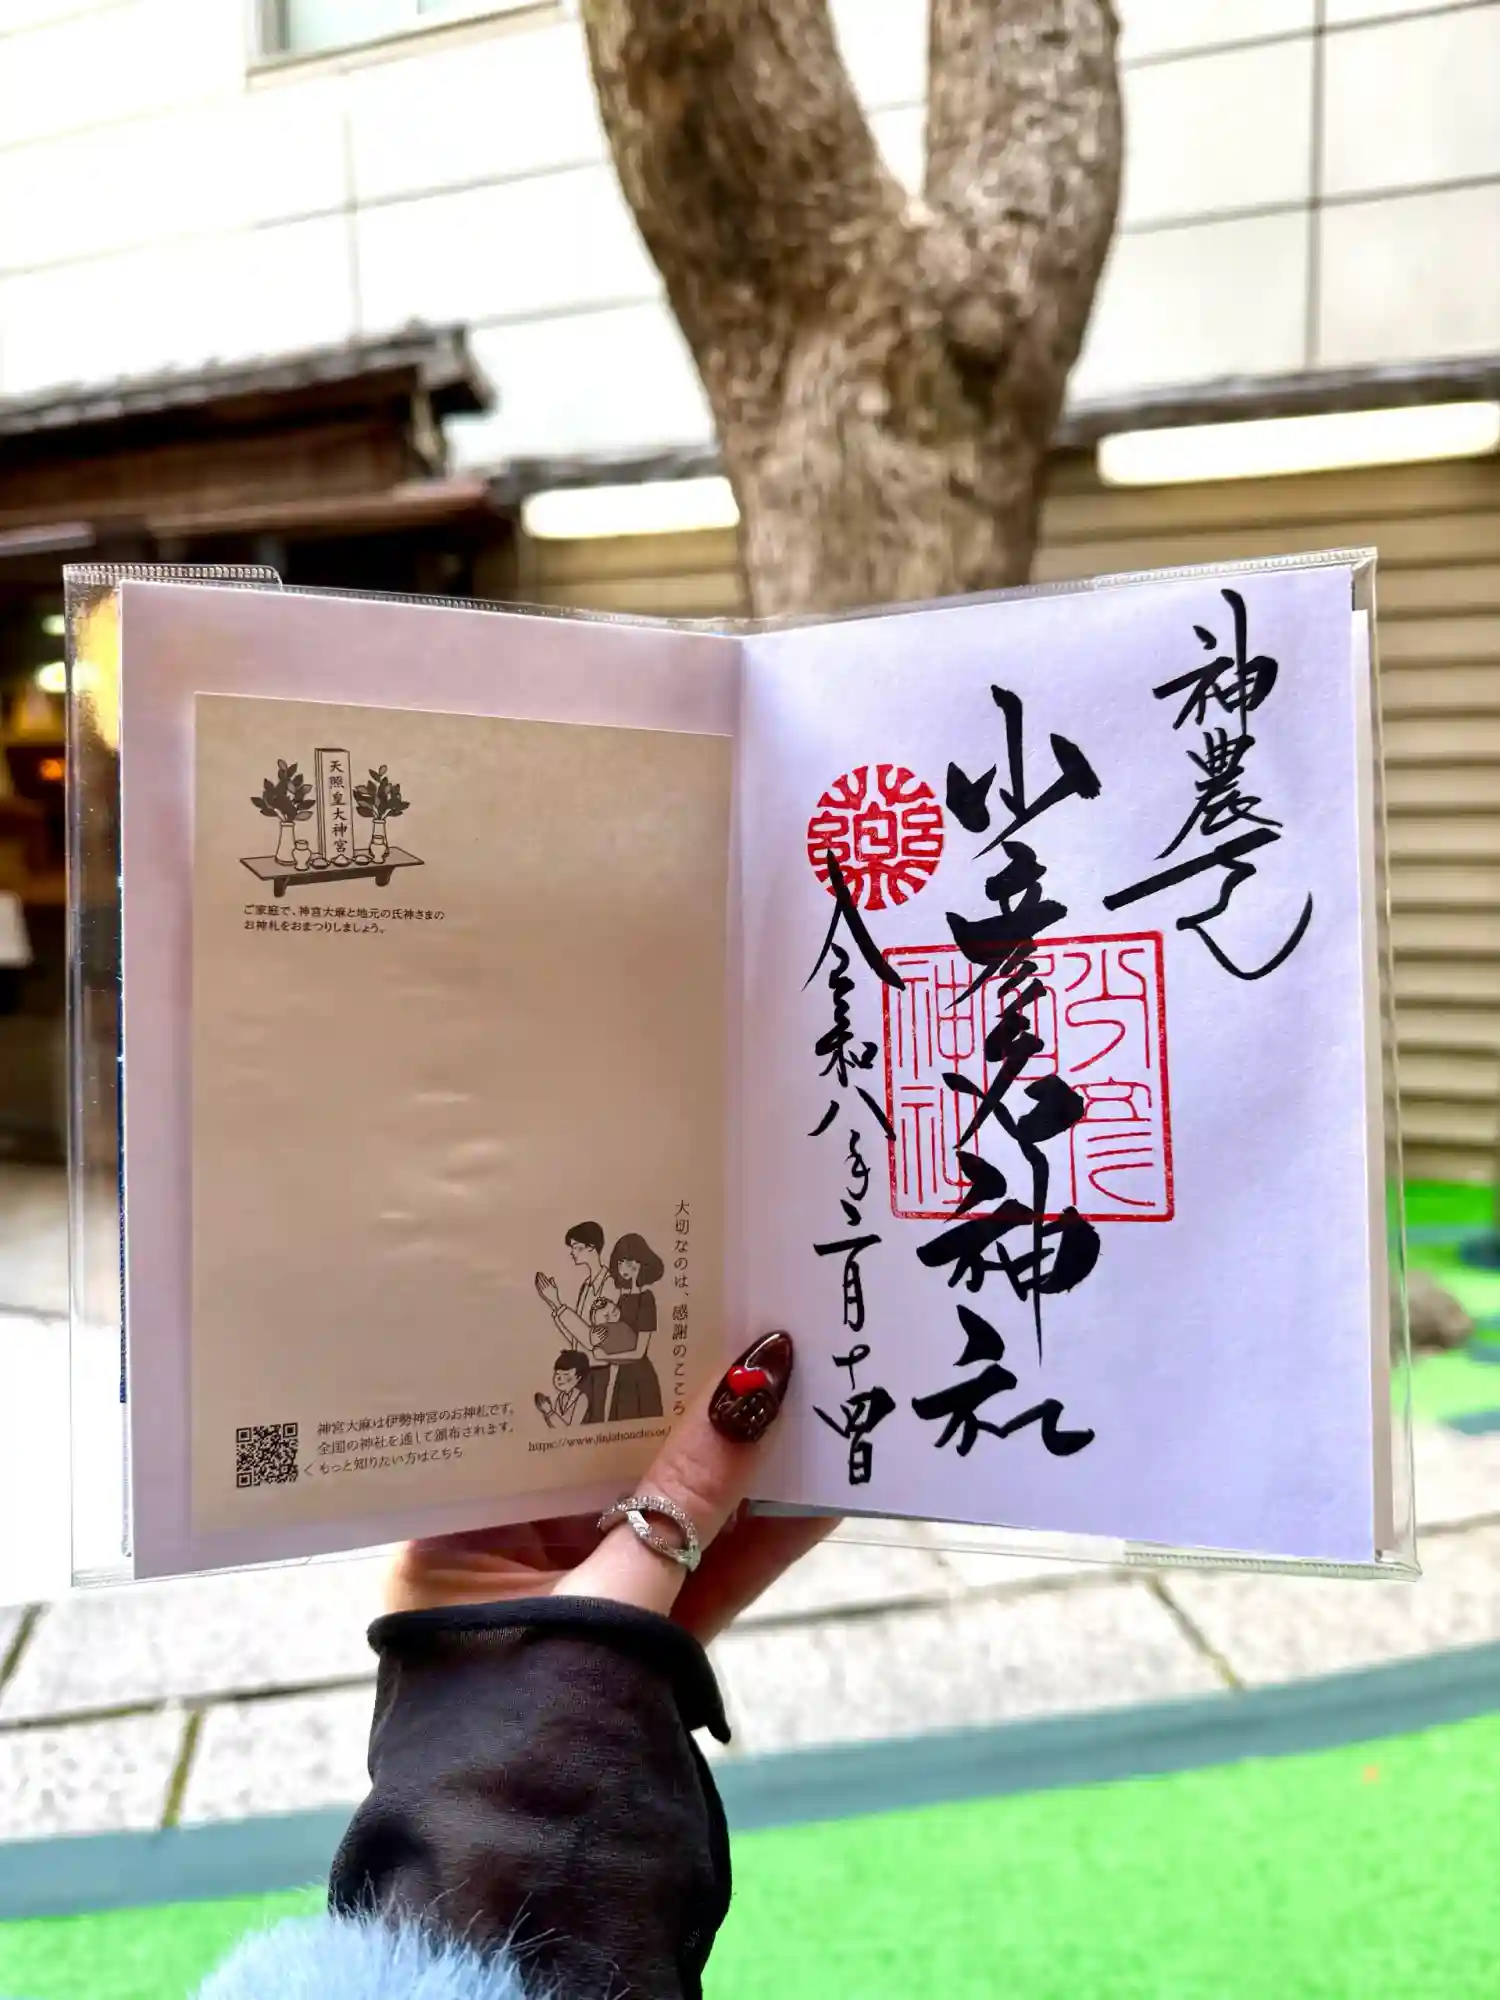 天照皇大神宮
ご家庭で、神宮大麻と地元の氏神さまの
お神札をおまつりしましょう。
大切なのは、感謝のこころ
神宮大麻は伊勢神宮のお神札です。
全国の神社を通して頒布されます。
< もっと知りたい方はこちら
https://www.jinjahoncho.or.j
神農さん
少彦名神社
少彦名神社
薬
令和八年二月十四日